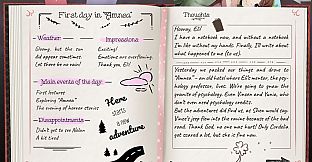 First day in "Amnea"
Weather
Gloomy, but the sun
did appear sometimes.
At there be no rain.
Impressions
Exciting!
Emotions are overflowing.
Thank you, Eli!
Main events of the day:
First lectures
Exploring "Amnea"
The evening of horror stories
Disappointments
Didn't get to see Aidan
A bit tired
Here
starts
a new
adventure
Thoughts
Hooray, Eli!
I have a notebook now, and without a notebook
I'm like without my hands. Finally, I'll write about
what happened to me (to us).
Yesterday we packed our things and drove to
"Amnea" - an old hotel where Eli's mentor, the psy-
chology professor, lives. We're going to gnaw the
granite of psychology. Even Vinsen and Yania, who
don't even need psychology credits.
But the adventures did find us, as Shen would say.
Vince's jeep flew into the ravine because of the dog on the
road. Thank God, no one was hurt! Only Cordelia
got scared a lot, but she is fine now.